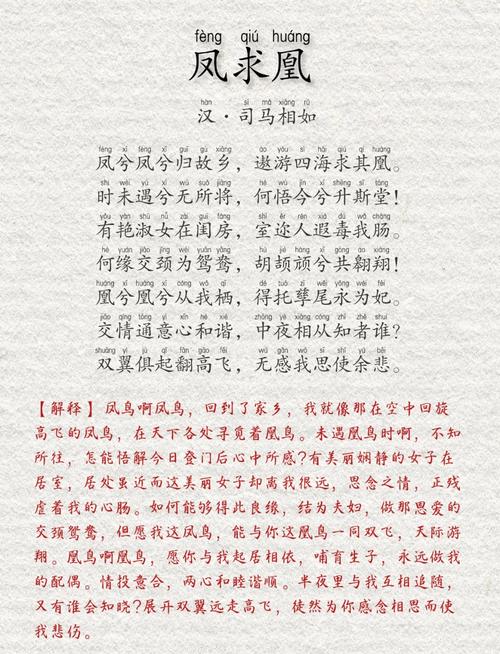 fèng qiú huáng
凤求凰
hàn sī mǎ xiāng rú
汉·司马相如
fèng xī fèng xī guī gù xiāng áo yóu sì hǎi qiú qí huáng
凤兮凤兮归故乡，遨游四海求其凰。
shí wèi yù xī wú suǒ jiāng hé wù jīn xī shēng sī táng
时未遇兮无所将，何悟今兮升斯堂！
yǒu yàn shū nǚ zài guī fáng shì ěr rén xiá dú wǒ cháng
有艳淑女在闺房，室迩人遐毒我肠。
hé yuán jiāo jǐng wéi yuān yāng hú jié háng xī gòng áo xiáng
何缘交颈为鸳鸯，胡颉颃兮共翱翔！
huáng xī huáng xī cóng wǒ qī dé tuō zī wěi yǒng wéi fēi
凰兮凰兮从我栖，得托孳尾永为妃。
jiāo qíng tōng yì xīn hé xié zhōng yè xiāng cóng zhī zhě shuí
交情通意心和谐，中夜相从知者谁？
shuāng yì jù qǐ fān gāo fēi wú gǎn wǒ sī shǐ yú bēi
双翼俱起翻高飞，无感我思使余悲。
【解释】凤鸟啊凤鸟，回到了家乡，我就像那在空中回旋
高飞的凤鸟，在天下各处寻觅着凰鸟。未遇凰鸟时啊，不知
所往，怎能悟解今日登门后心中所感？有美丽娴静的女子在
居室，居处虽近而这美丽女子却离我很远，思念之情，正残
虐着我的心肠。如何能够得此良缘，结为夫妇，做那恩爱的
交颈鸳鸯，但愿我这凤鸟，能与你这凰鸟一同双飞，天际游
翔。凰鸟啊凰鸟，愿你与我起居相依，哺育生子，永远做我
的配偶。情投意合，两心和睦谐顺。半夜里与我互相追随，
又有谁会知晓？展开双翼远走高飞，徒然为你感念相思而使
我悲伤。